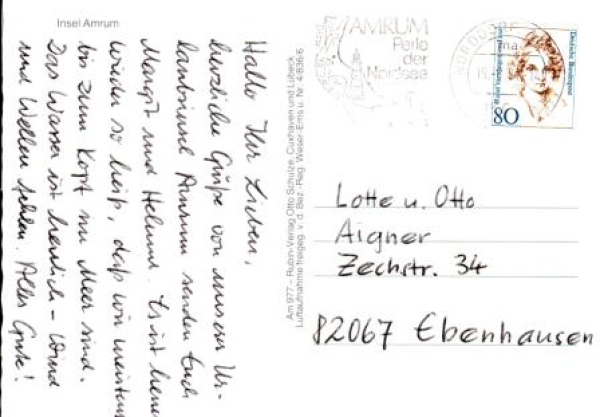 Insel Amrum
Hallo Ihr Lieben,
herzliche Grüße von unserer Ur-
laubsinsel Amrum senden Euch
Margit und Helmut. Es ist heuer
wieder so heiß, daß wir meistens
bis zum Kopf im Meer sind.
Das Wasser ist herrlich - Wind
und Wellen fehlen. Alles Gute!
Am 977 – Rubin-Verlag Otto Schulze, Cuxhaven und Lübeck
Luftaufnahme freigeg. v. d. Bez.-Reg. Weser-Ems u. Nr. 4/836/6
AMRUM
Perle
der
Nordsee
NORDDORF
Deutsche Bundespost
80
Lotte u. Otto
Aigner
Zechstr. 34
82067 Ebenhausen